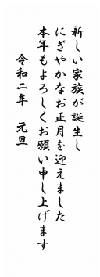 新しい家族が誕生し
にぎやかなお正月を迎えました
本年もよろしくお願い申し上げます
令和二年　元旦